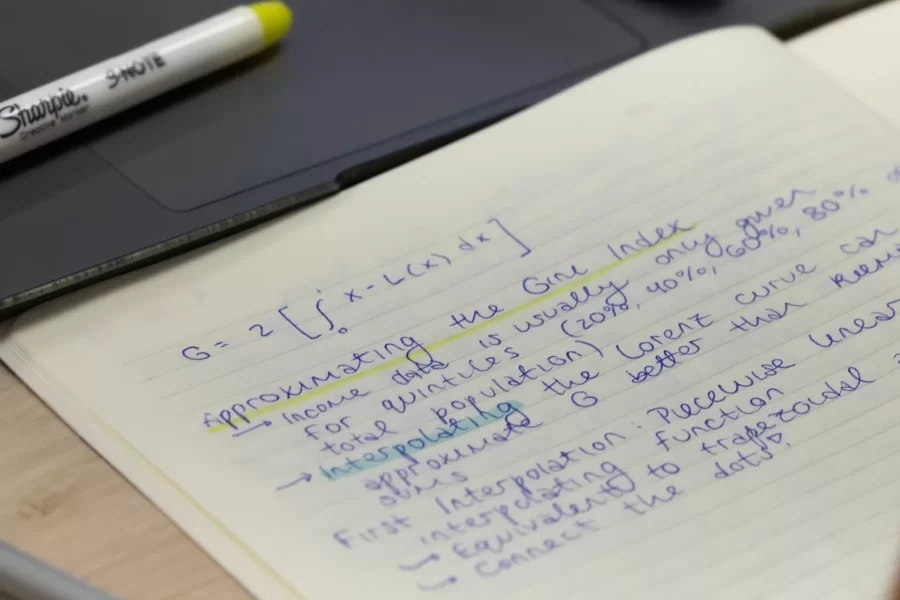 Sharpie. S·NOTE
Creative Marker
G = 2 [ ∫₀¹ x - L(x) dx ]
Approximating the Gini Index
→ Income data is usually only given
for quintiles (20%, 40%, 60%, 80%
total population)
→ Interpolating the Lorenz curve can
approximate G better than
sums
First Interpolation: Piecewise linear
interpolating function
→ Equivalent to trapezoidal
→ Connect the dots.